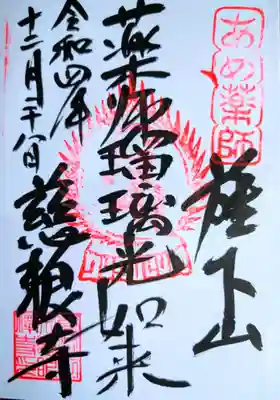 あめ薬師
龍下山
薬師瑠璃光如来
令和四年
十二月二十八日
慈眼寺